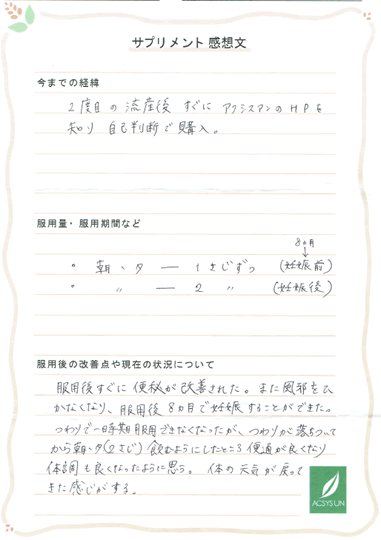 サプリメント 感想文
今までの経緯
2度目の流産後 すぐに アクシスアンのHPを
知り 自己判断で購入。
服用量・服用期間など
8ヵ月
" 朝、夕 ー 1さじずつ (妊娠前)
" 〃 ー 2 〃 (妊娠後)
服用後の改善点や現在の状況について
服用後すぐに 便秘が改善された。また風邪をひ
かなくなり、服用後 8ヵ月で妊娠することができた。
つわりで一時期服用できなくなったが、つわりが落ちついて
から朝、夕(2さじ)飲むようにしたところ 便通が良くなり
体調も良くなったように思う。 体の元気が戻って
きた感じがする。
ACSYSUN